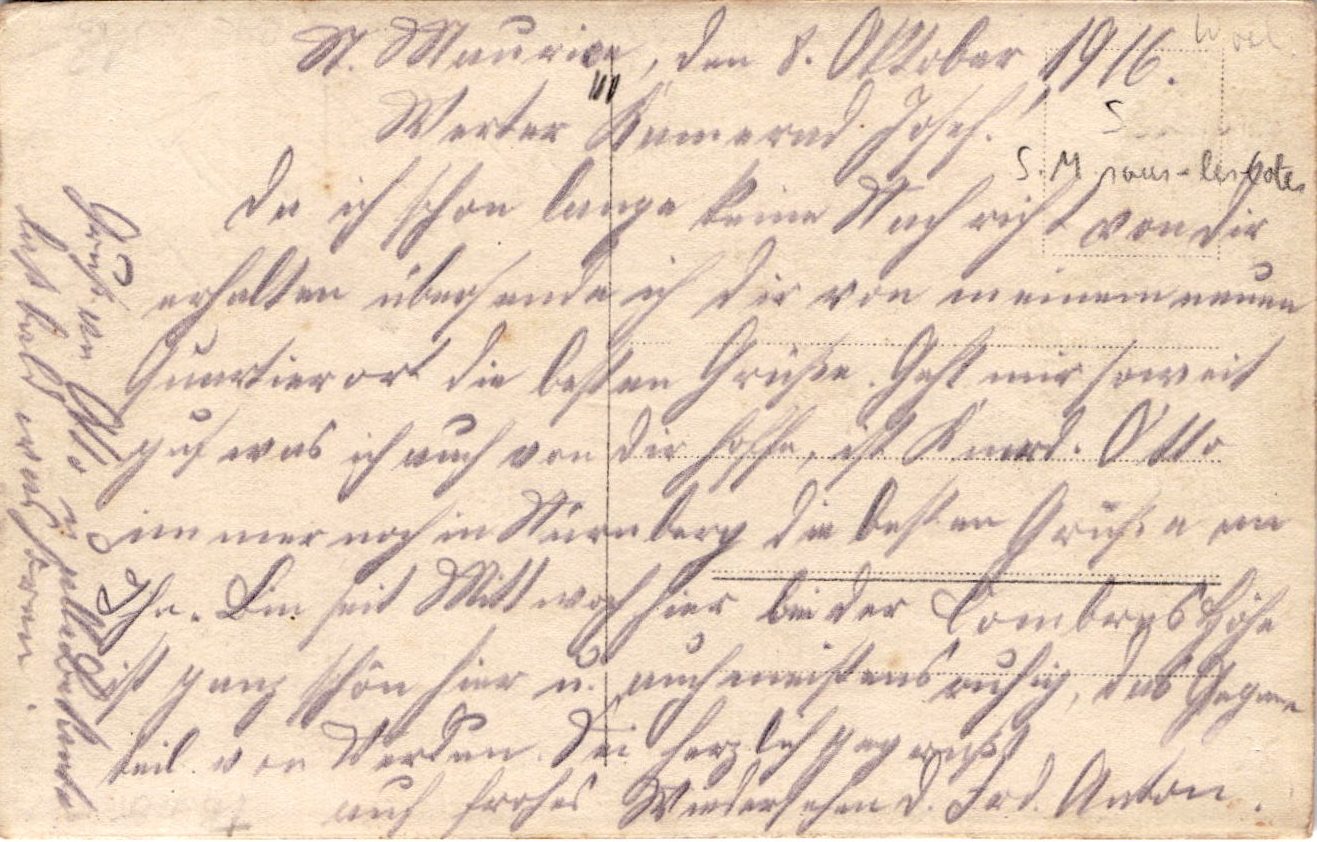 St. Maurice, den 8. Oktober 1916.
Werter Kamerad Josef.
Da ich schon lange keine Nachricht von dir
erhalten übersende ich dir von meinem neuen
Quartierort die besten Grüße. Geht mir soweit
gut was ich auch von dir hoffe, ist Kamrd. Otto
immer noch in Nürnberg die besten Grüße an
Ihn. Bin seit Mittwoch hier bei der Combres Höhe
ist ganz schön hier u. auch meistens ruhig, das Gegen
teil von Verdun. Sei herzlich gegrüßt
auf frohes Wiedersehen d. Frd. Anton.
Gruß an Otto u. alle Bekannte
laßt bald was hören.
Woel.
S
S. M sous-les-Cotes